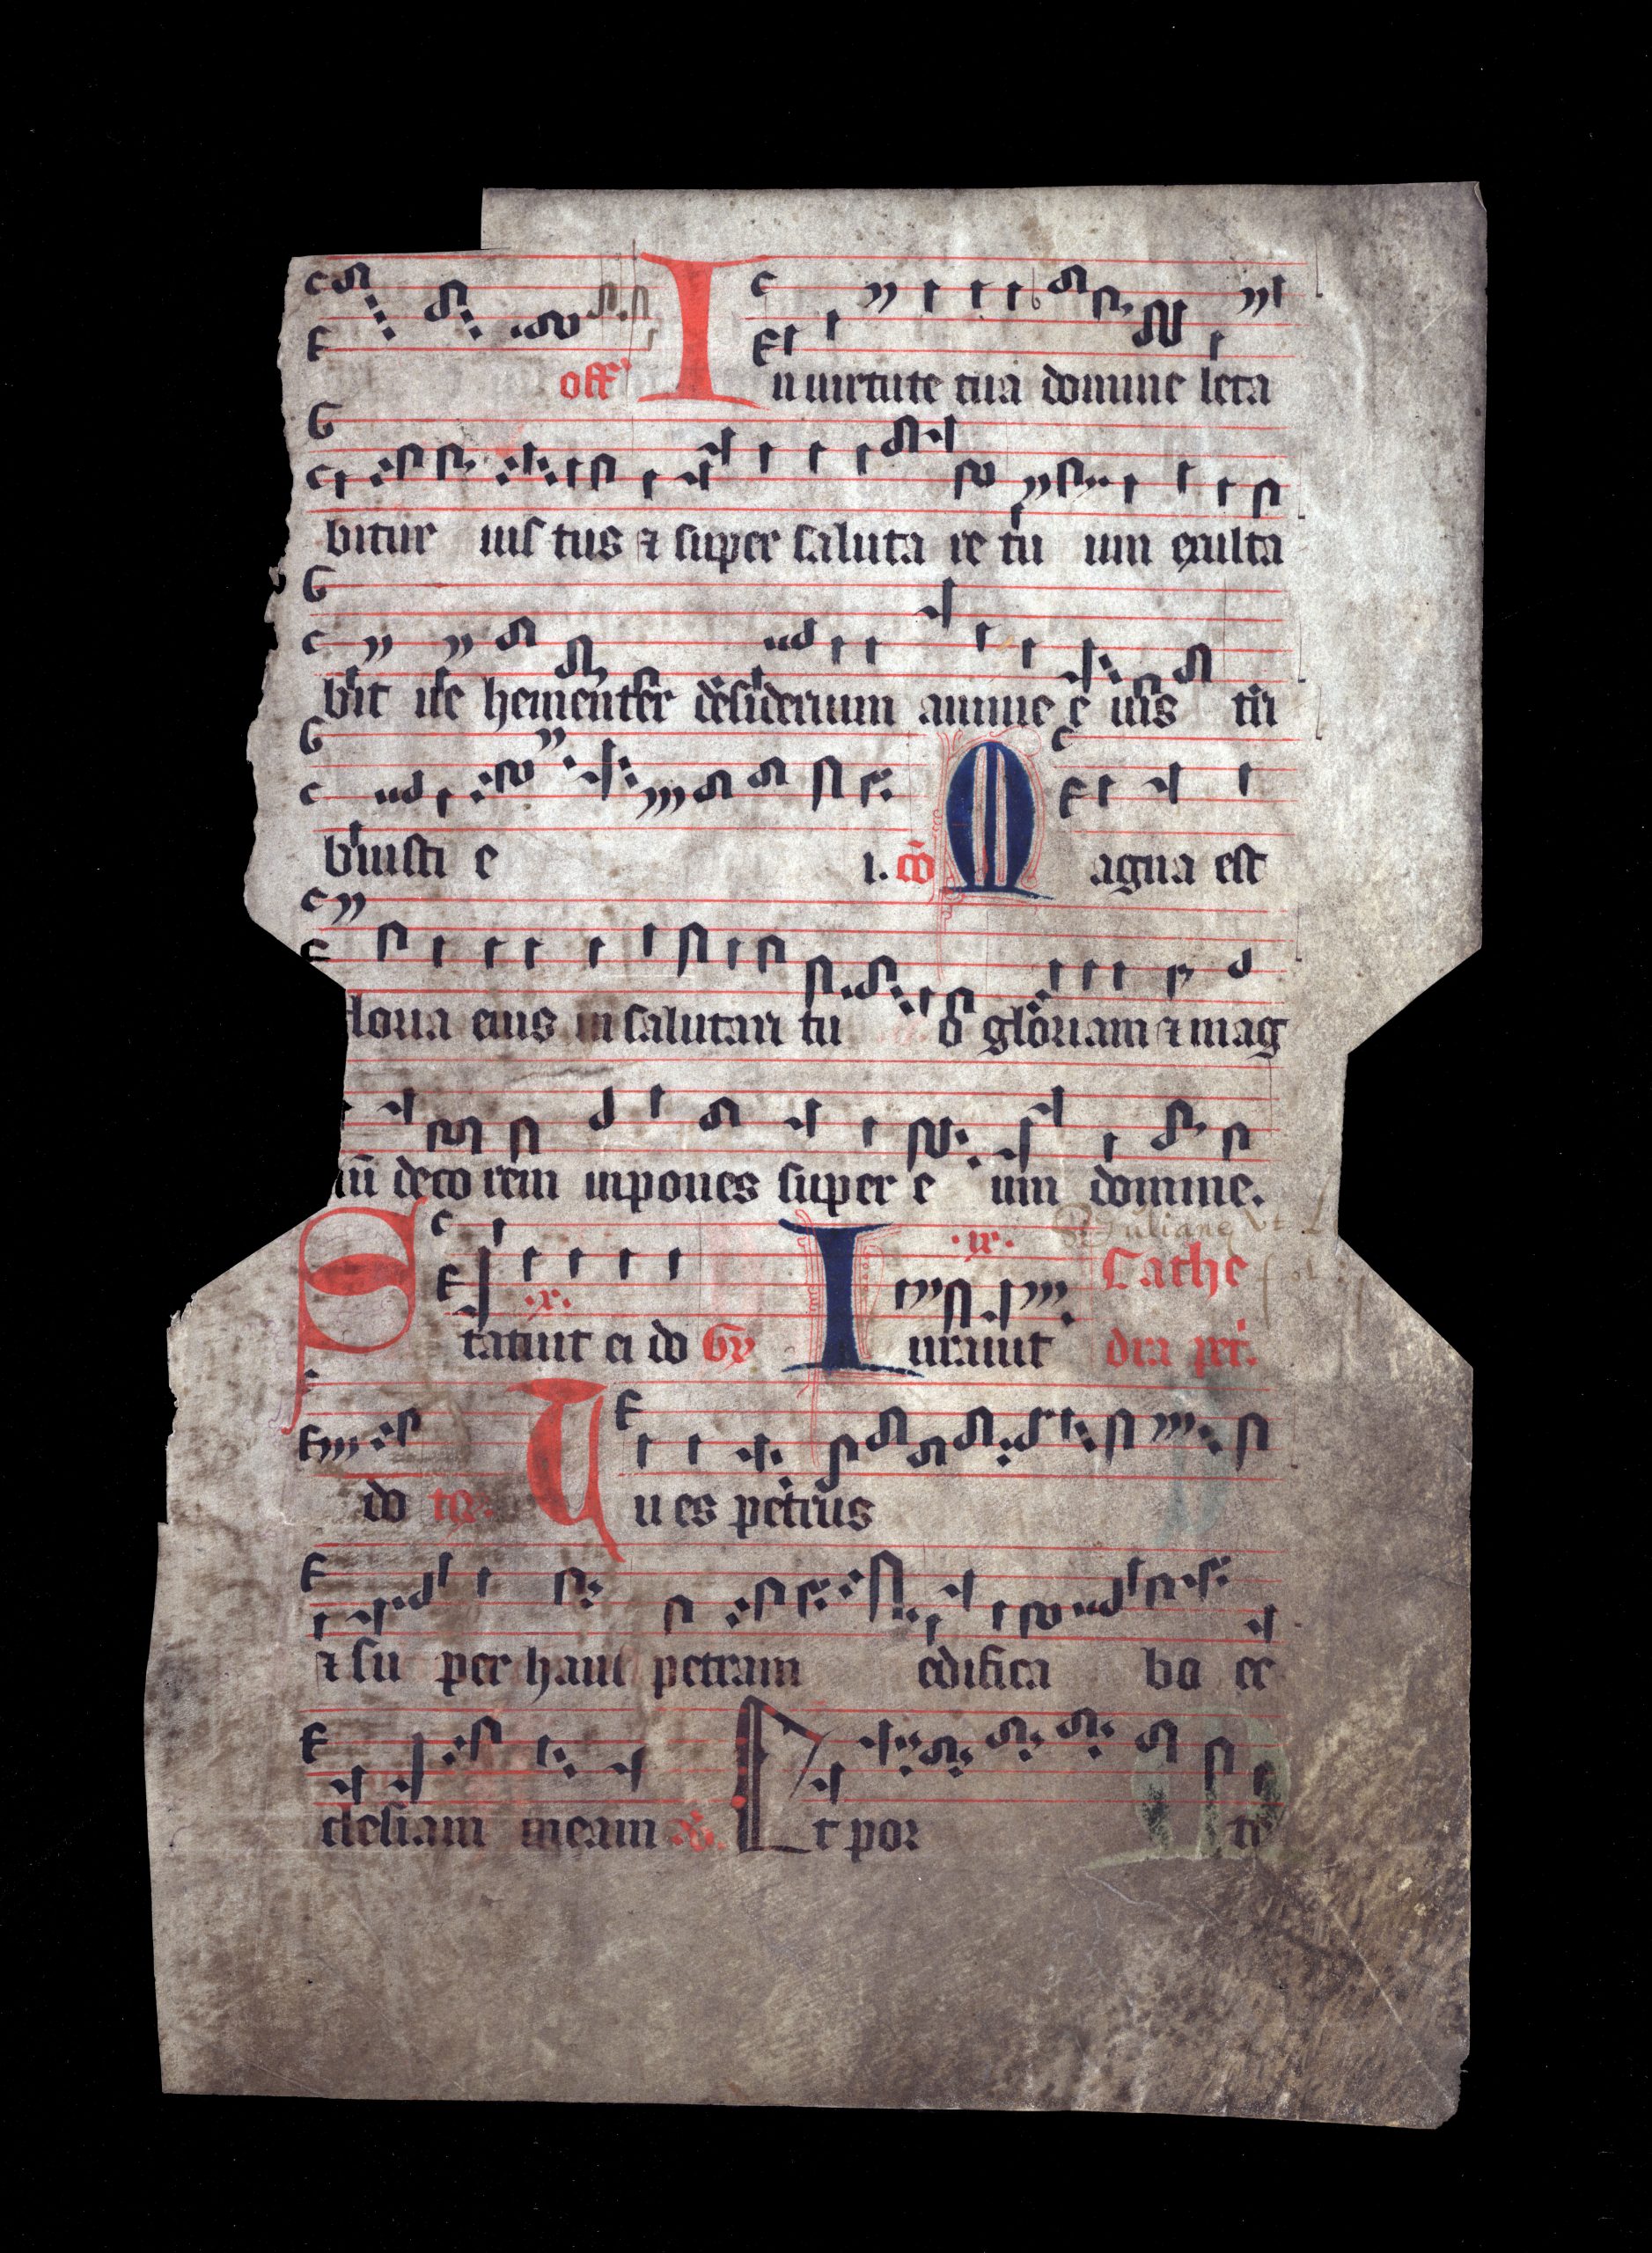 off̄ In uirtute tua domine leta
bitur ius tus ⁊ super saluta re tu um exulta
bit ue hementer desiderium anime e ius tri
buisti e i. cō Magna est
loria eius in salutari tu o gloriam ⁊ mag
nū deco rem inpones super e um domine.
Statuit ei do Gr̄ .x. Iurauit .ix. Cathe
dra petr̄.
do tr̄. Tu es petrus
⁊ su per hanc petram edifica bo ec
clesiam meam Et por te